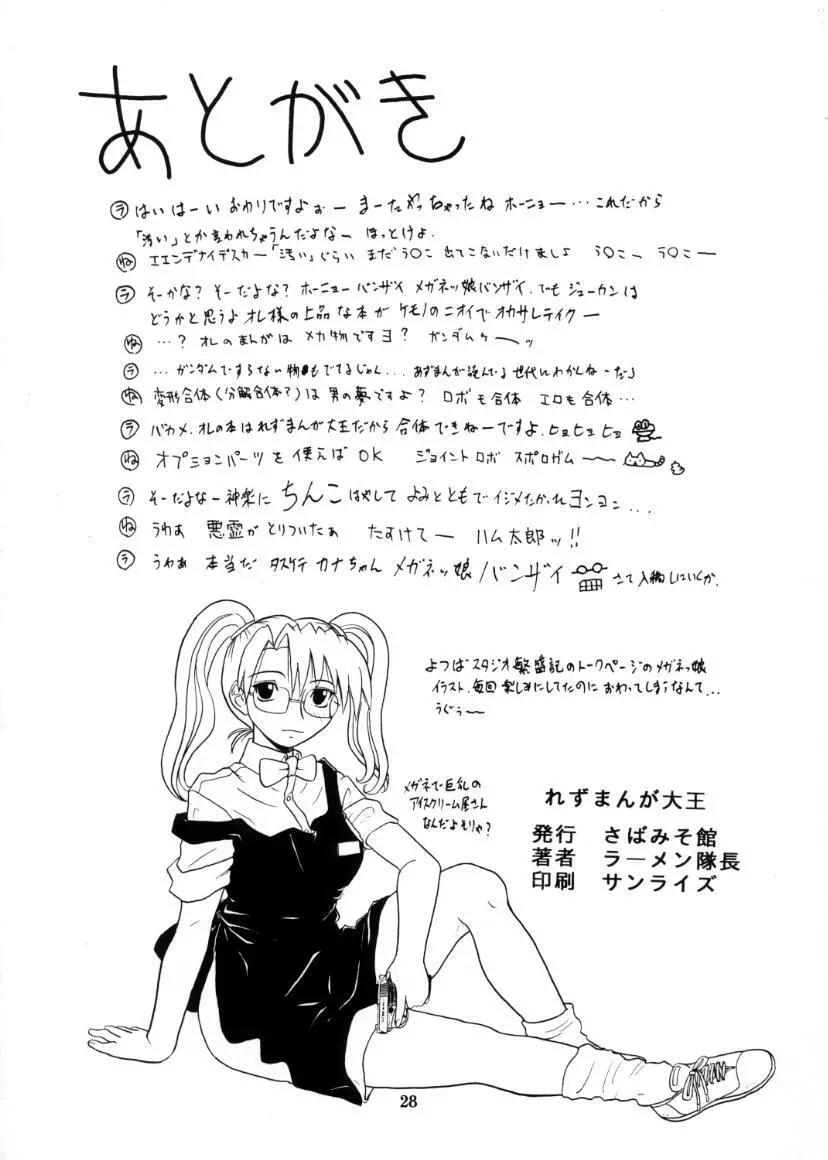 あとがき
ラ はいはーい おわりですよぉー まーたやっちゃったね ホーニョー…これだから
「汚い」とか言われちゃうんだよなー ほっとけよ.
ね エエンデナイデスカー「汚い」ぐらい まだ う○こ 出てこないだけましよ う○こー う○こー
ラ そーかな? そーだよな? ホーニョーバンザイ メガネッ娘バンザイ. でもジューカンは
どうかと思うよ オレ様の上品な本が ケモノのニオイで オカサレテイクー
ね …? オレのまんがは メカ物ですヨ? ガンダムゥーーッ
ラ …ガンダムですらない物もでてるじゃん… あずまんが読んでる世代にわかんねーだろ
ね 変形合体(分解合体?)は 男の夢ですよ? ロボも合体 エロも合体…
ラ バカメ. オレの本はれずまんが大王だから 合体できねーですよ. ヒョヒョヒョ
ね オプションパーツを使えばOK ジョイントロボ スポロガム〜〜
ラ そーだよなー神楽に ちんこはやして よみとともでイジメたかったヨンヨン...
ね うわぁ 悪霊が とりついたぁ たすけてー ハム太郎ッ!!
ラ うわぁ 本当だ タスケテ カナちゃん メガネッ娘バンザイ さて入稿しにいくか.
よつばスタジオ繁盛記のトークページのメガネっ娘
イラスト. 毎回楽しみにしてたのに おわってしまうなんて...
うぐぅ〜〜
メガネで巨乳の
アイスクリーム屋さん
なんだよそりゃ?
れずまんが大王
発行 さばみそ館
著者 ラーメン隊長
印刷 サンライズ
28